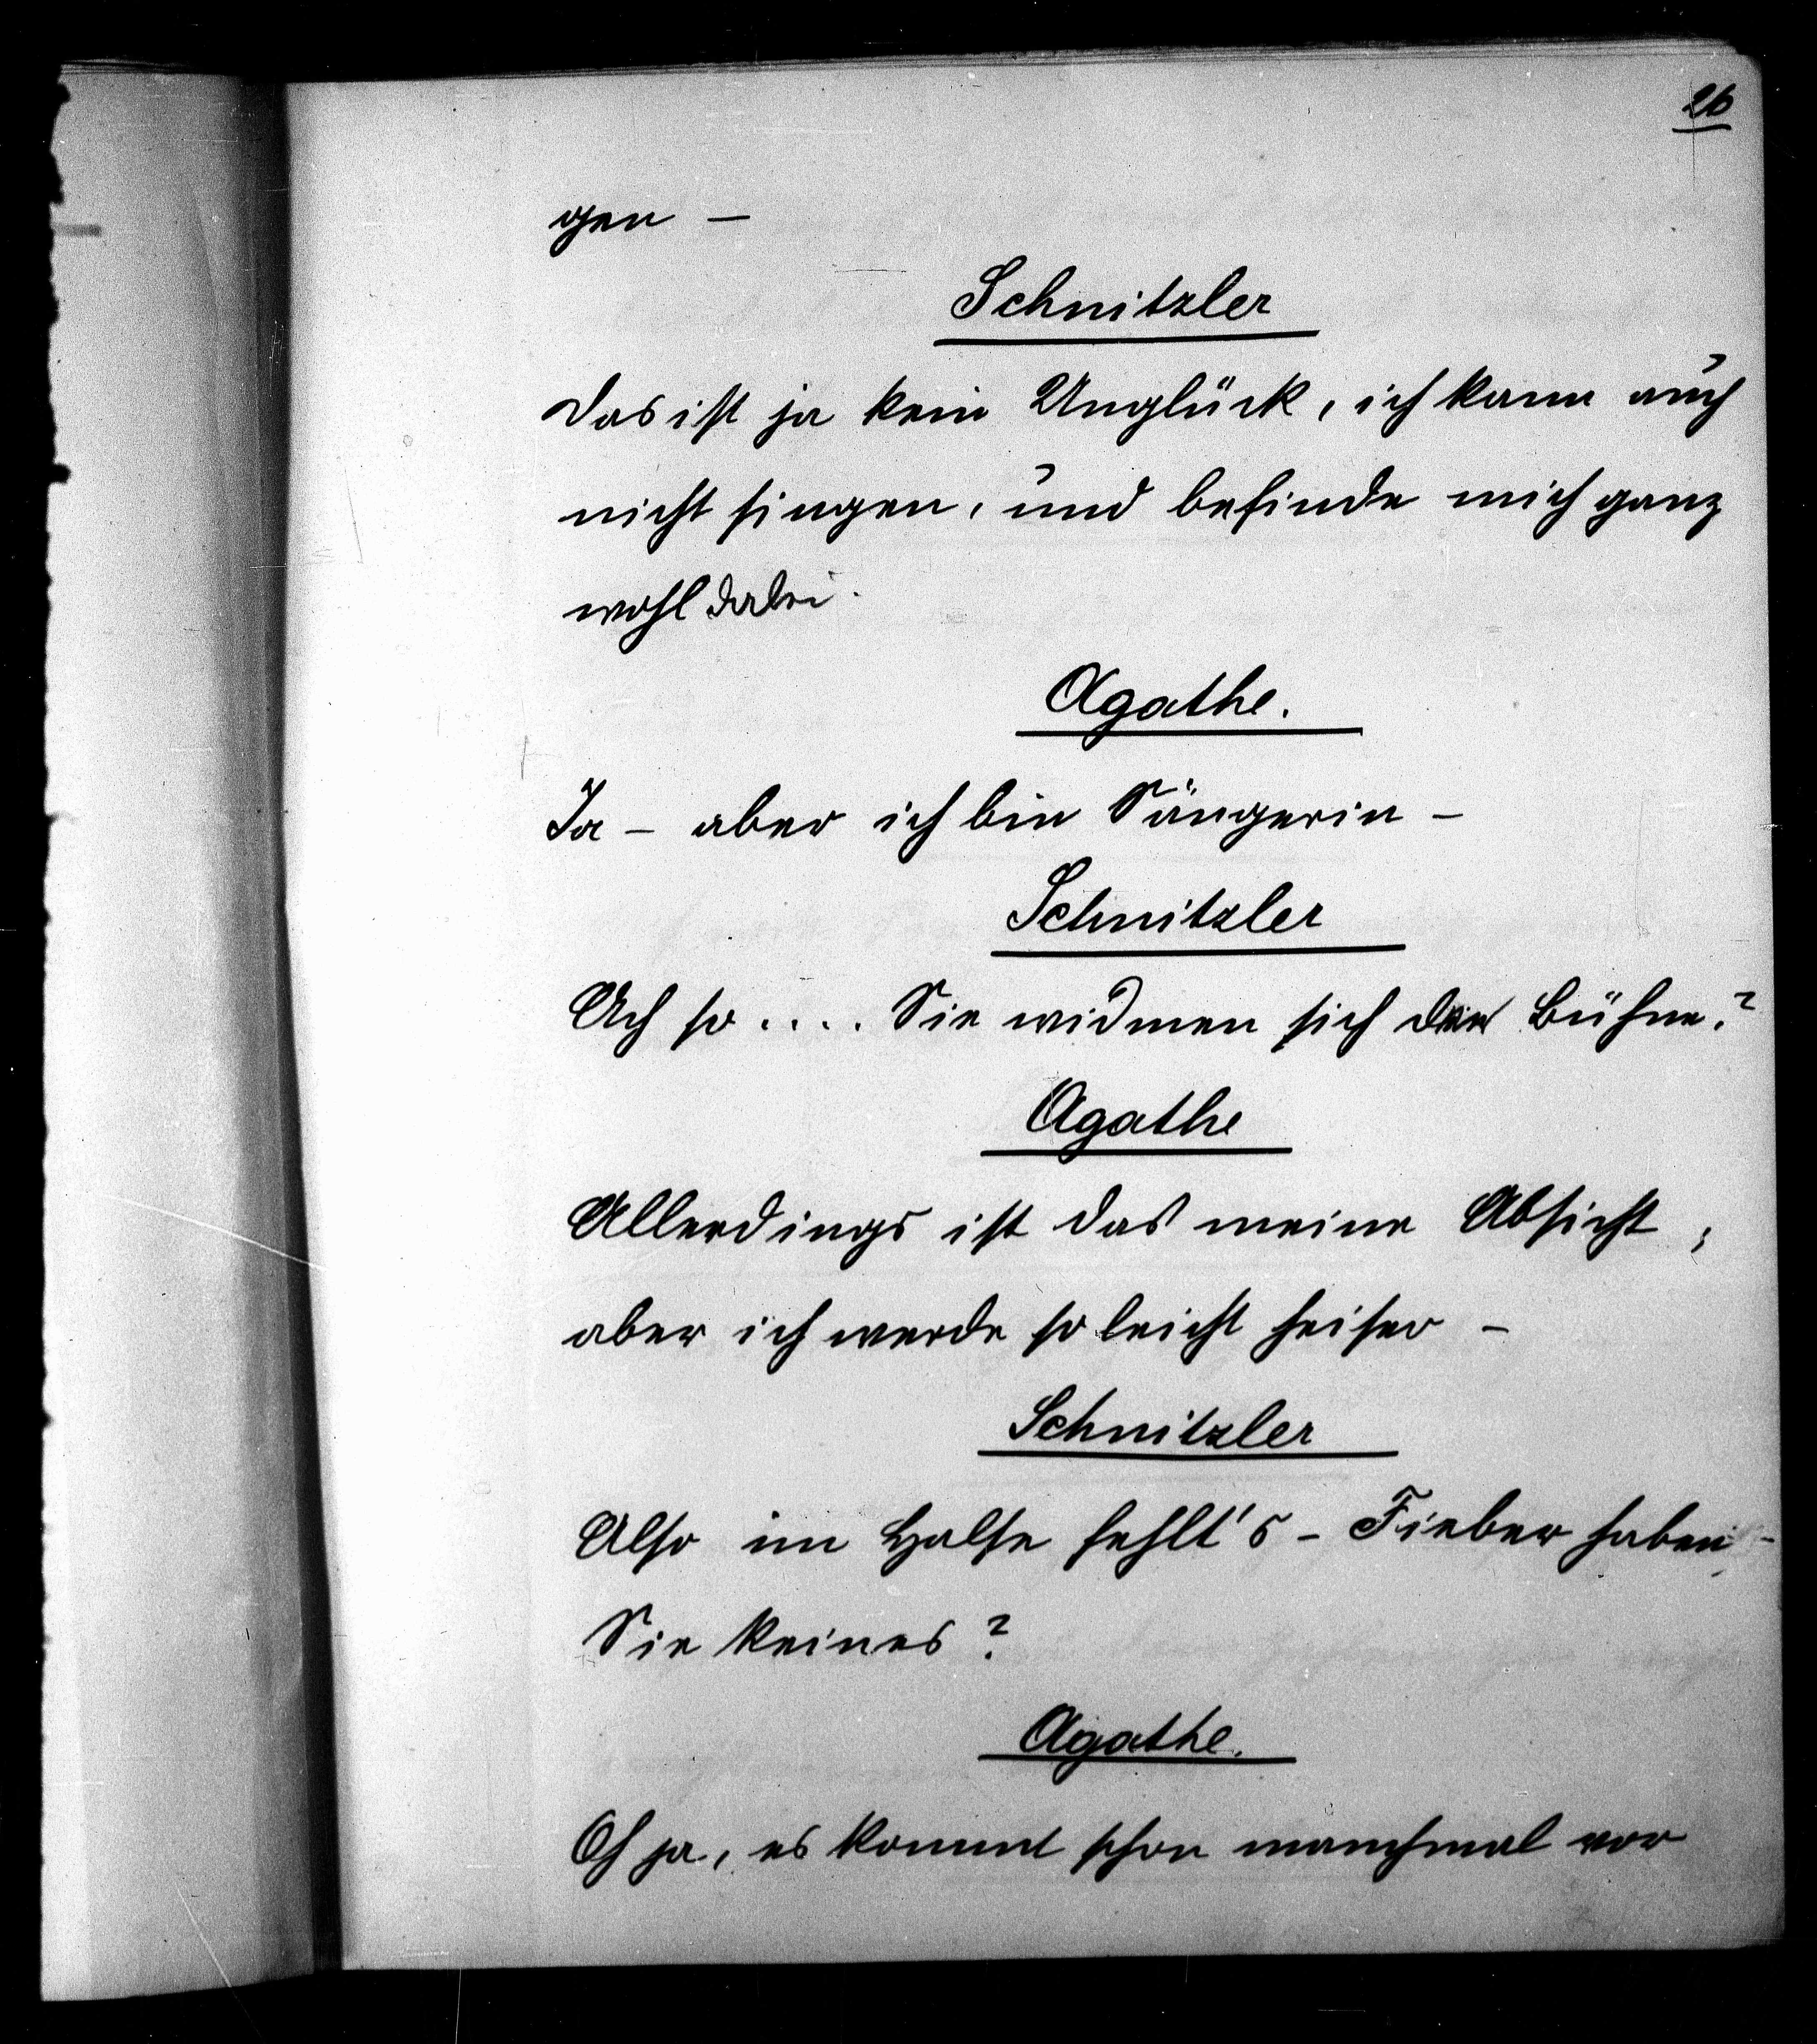 26
gen –
Schnitzler
Das ist ja kein Unglück, ich kann auch
nicht singen, und befinde mich ganz
wohl dabei.
Agathe.
Ja – aber ich bin Sängerin –
Schnitzler
Ach so .... Sie widmen sich der Bühne?
Agathe
Allerdings ist das meine Absicht,
aber ich werde so leicht heiser –
Schnitzler
Also im Halse fehlt's – Fieber haben
Sie keines?
Agathe.
Oh ja, es kommt schon manchmal vor